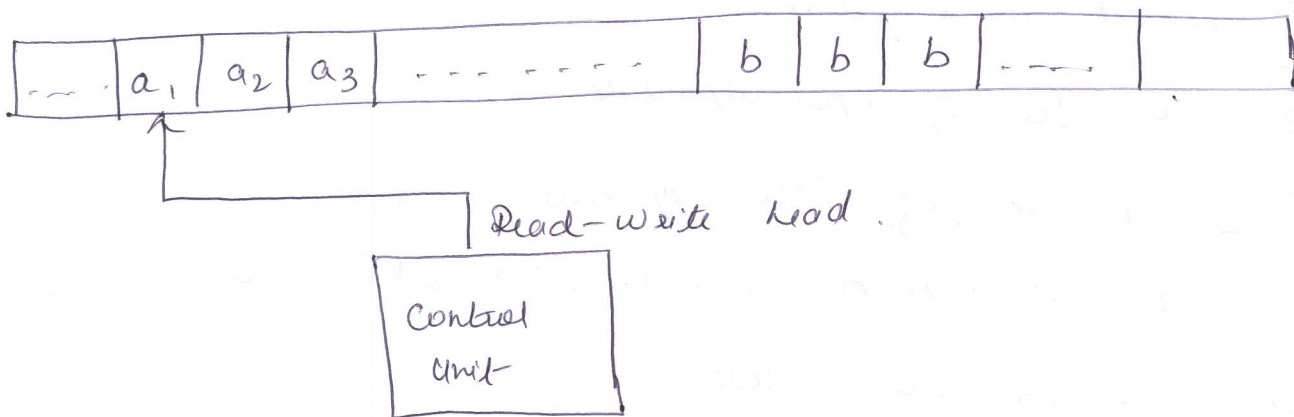 ---- a₁ a₂ a₃ ------- b b b ----
Read-Write head.
Control
Unit